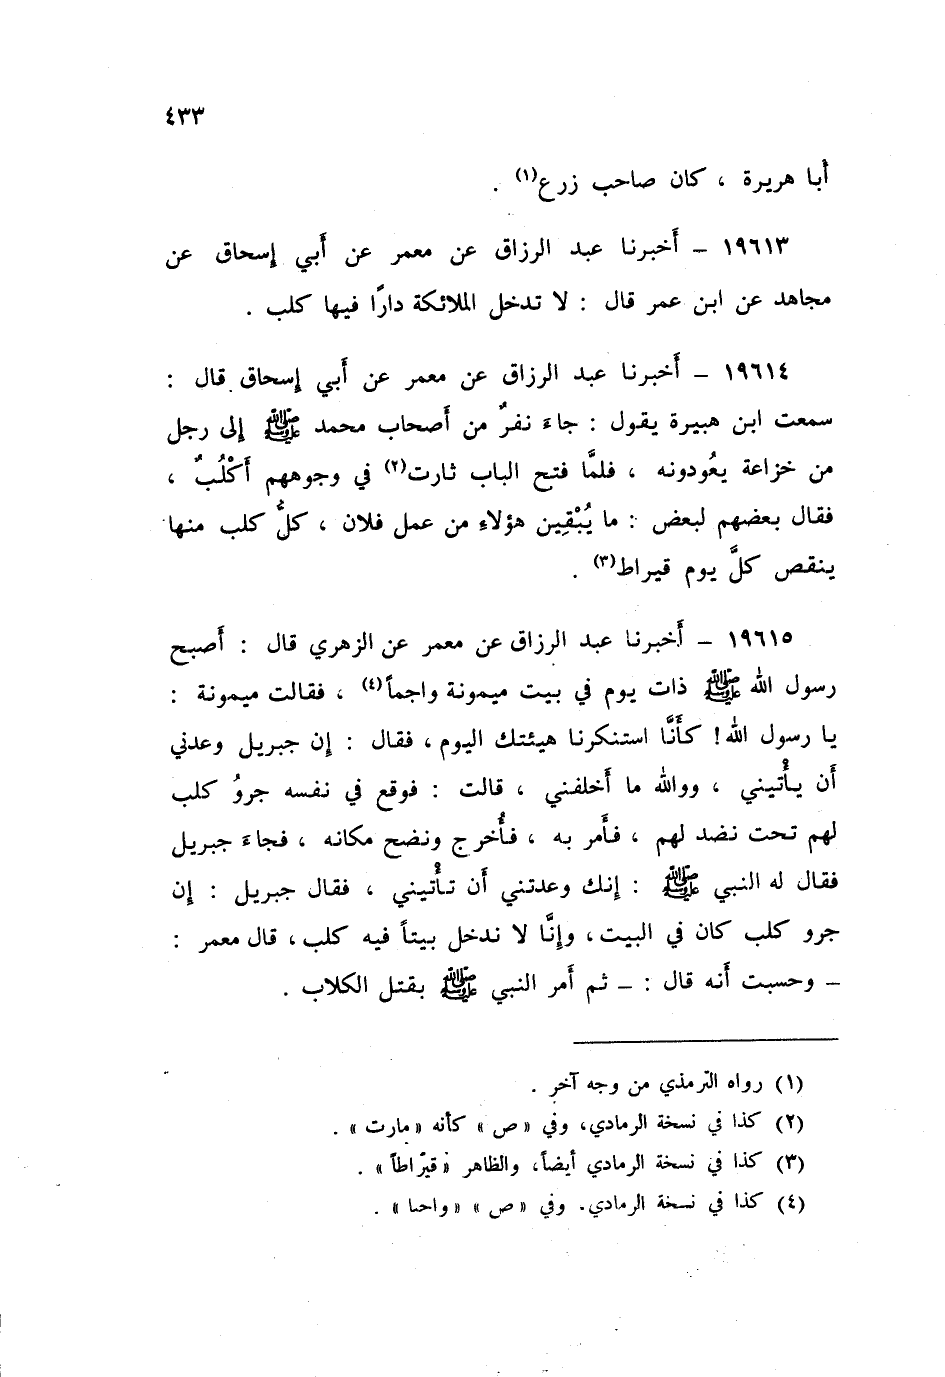 ٤٣٣
أبا هريرة ، كان صاحب زرع(١) .
١٩٦١٣ – أَخبرنا عبد الرزاق عن معمر عن أَبي إسحاق عن
مجاهد عن ابن عمر قال : لا تدخل الملائكة دارًا فيها كلب .
١٩٦١٤ – أَخبرنا عبد الرزاق عن معمر عن أَبي إسحاق قال :
سمعت ابن هبيرة يقول : جاءَ نفرٌ من أَصحاب محمد ﷺ إلى رجل
من خزاعة يعُودونه ، فلمَّا فتح الباب ثارت(٢) في وجوههم أَكْلُبٌ ،
فقال بعضهم لبعض : ما يُبْقِين هؤلاءِ من عمل فلان ، كلُّ كلب منها
ينقص كلَّ يوم قيراط(٣) .
١٩٦١٥ – أَخبرنا عبد الرزاق عن معمر عن الزهري قال : أَصبح
رسول الله ﷺ ذات يوم في بيت ميمونة واجماً(٤) ، فقالت ميمونة :
يا رسول الله! كأَنَّا استنكرنا هيئتك اليوم ، فقال : إن جبريل وعدني
أَن يأْتيني ، ووالله ما أَخلفني ، قالت : فوقع في نفسه جروُ كلب
لهم تحت نضد لهم ، فأَمر به ، فأُخرج ونضح مكانه ، فجاءَ جبريل
فقال له النبي ﷺ : إنك وعدتني أَن تأْتيني ، فقال جبريل : إن
جرو كلب كان في البيت ، وإنَّا لا ندخل بيتاً فيه كلب ، قال معمر :
– وحسبت أَنه قال : – ثم أَمر النبي ﷺ بقتل الكلاب .
(١) رواه الترمذي من وجه آخر .
(٢) كذا في نسخة الرمادي، وفي « ص » كأنه « مارت » .
(٣) كذا في نسخة الرمادي أيضاً، والظاهر « قيراطاً » .
(٤) كذا في نسخة الرمادي. وفي « ص » « واحىا » .